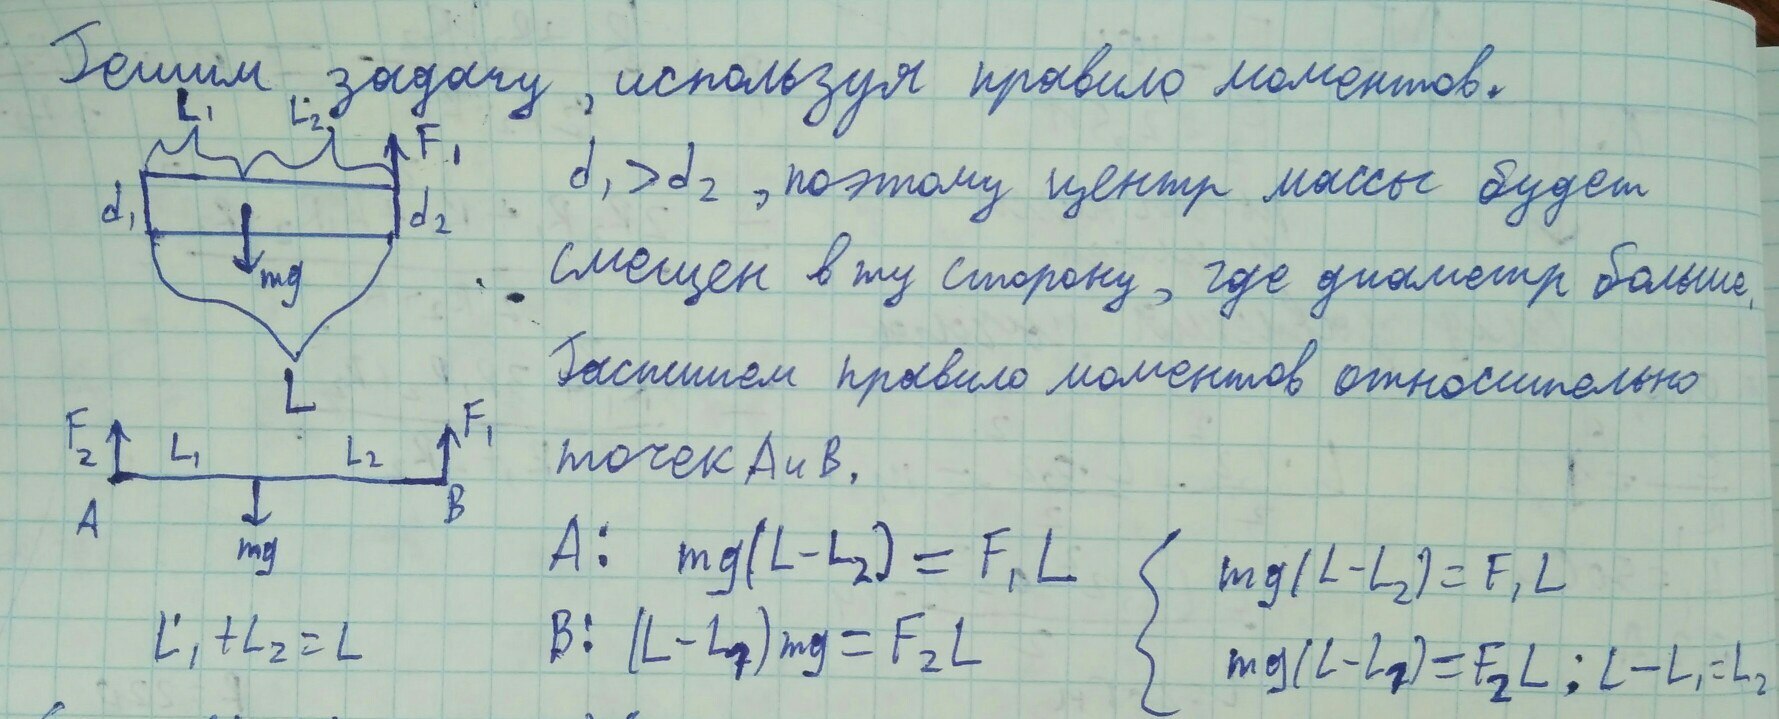 Решим задачу, используя правило моментов.
L₁ L₂ F₁
d₁ d₂
mg
L
d₁>d₂, поэтому центр массы будет
смещен в ту сторону, где диаметр больше.
Распишем правило моментов относительно
точек А и В.
F₂ L₁ L₂ F₁
A B
mg
L₁+L₂=L
A: mg(L-L₂)=F₁L
B: (L-L₁)mg=F₂L
{ mg(L-L₂)=F₁L
mg(L-L₁)=F₂L; L-L₁=L₂